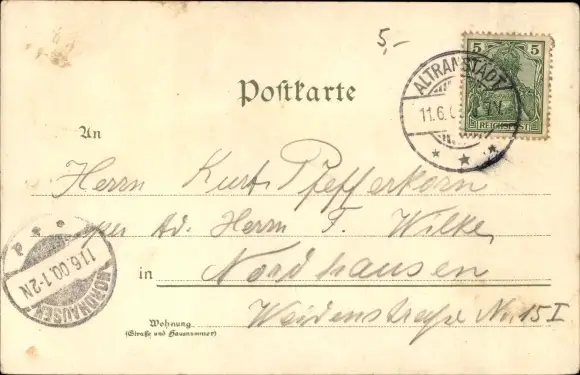 5,-
5 5
REICHSPOST
ALTRANSTÄDT
11.6.0
Postkarte
An
Herrn Kurt Pfefferkorn
per Ad. Herrn F. Wilke,
in Nordhausen
Weidenstraße No. 15 I
Wohnung
(Straße und Hausnummer)
NORDHAUSEN
11.6.00.1-2N